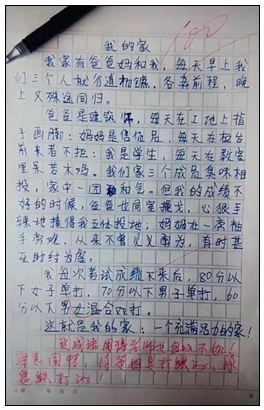 100
我的家
我家有爸爸妈和我，每天早上我
们三个人就分道扬镳，各奔前程，晚
上又殊途同归。
爸爸是建筑师，每天在工地上指
手画脚；妈妈是售货员，每天在柜台
前来者不拒；我是学生，每天在教室
里呆若木鸡。我们家三个成员臭味相
投，家中一团和气。但我的成绩不
好的时候，爸爸也同室操戈，心狠手
辣地揍得我五体投地；妈妈在一旁袖
手旁观，从来不曾见义勇为，有时甚
至助纣为虐。
我每次考试成绩下来后，80分以
下女子单打，70分以下男子单打，60
分以下男女混合双打。
这就是我的家：一个充满活力的家！
这成语用得老师也自叹不如！